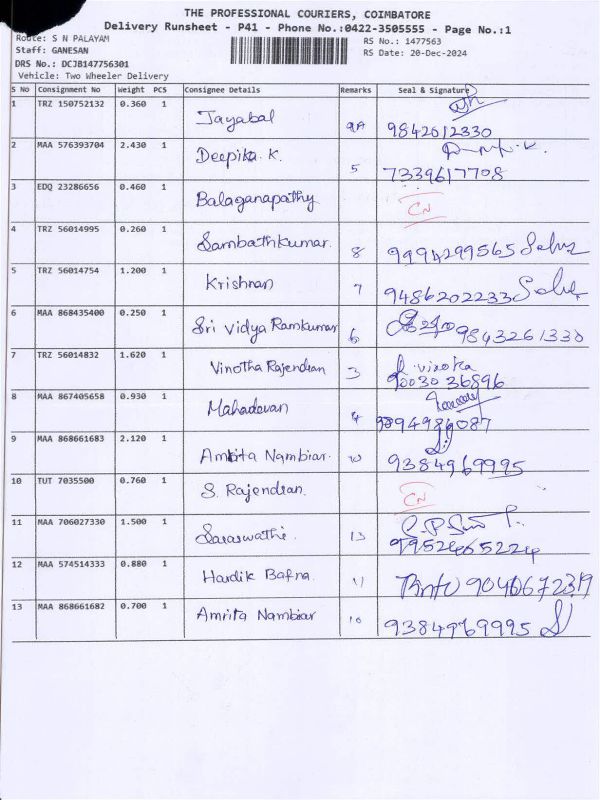 THE PROFESSIONAL COURIERS, COIMBATORE
Delivery Runsheet - P41 - Phone No.:0422-3505555 - Page No.:1
Route: S N PALAYAM
RS No.: 1477563
Staff: GANESAN
RS Date: 20-Dec-2024
DRS No.: DCJB147756301
Vehicle: Two Wheeler Delivery
S No Consignment No Weight PCS Consignee Details Remarks Seal & Signature
1 TRZ 150752132 0.360 1 Jayabal 9A 9842612330
2 MAA 576393704 2.430 1 Deepika. K. 5 7339617708
3 EDQ 23286656 0.460 1 Balaganapathy CN
4 TRZ 56014995 0.260 1 Sambathkumar. 8 9994299565
5 TRZ 56014754 1.200 1 Krishnan 7 9486202233
6 MAA 868435400 0.250 1 Sri Vidya Ramkumar 6 9843261330
7 TRZ 56014832 1.620 1 Vinotha Rajendran 3 R. vinotha
90030 36896
8 MAA 867405658 0.930 1 Mahadevan 4
9 MAA 868661683 2.120 1 Amrita Nambiar. 10 9384969995
10 TUT 7035500 0.760 1 S. Rajendran. CN
11 MAA 706027330 1.500 1 Saraswathi. 13
9952465224
12 MAA 574514333 0.880 1 Hardik Bafna. 11
13 MAA 868661682 0.700 1 Amrita Nambiar 10 9384969995